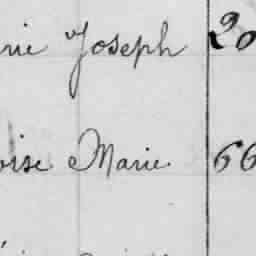 rie Joseph 20
oise Marie 66